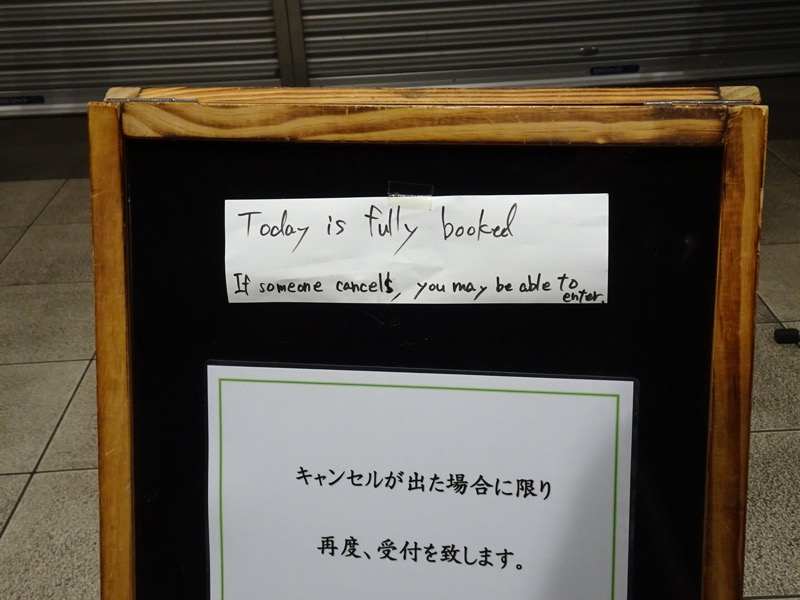 Today is fully booked
If someone cancels, you may be able to
enter.
キャンセルが出た場合に限り
再度、受付を致します。